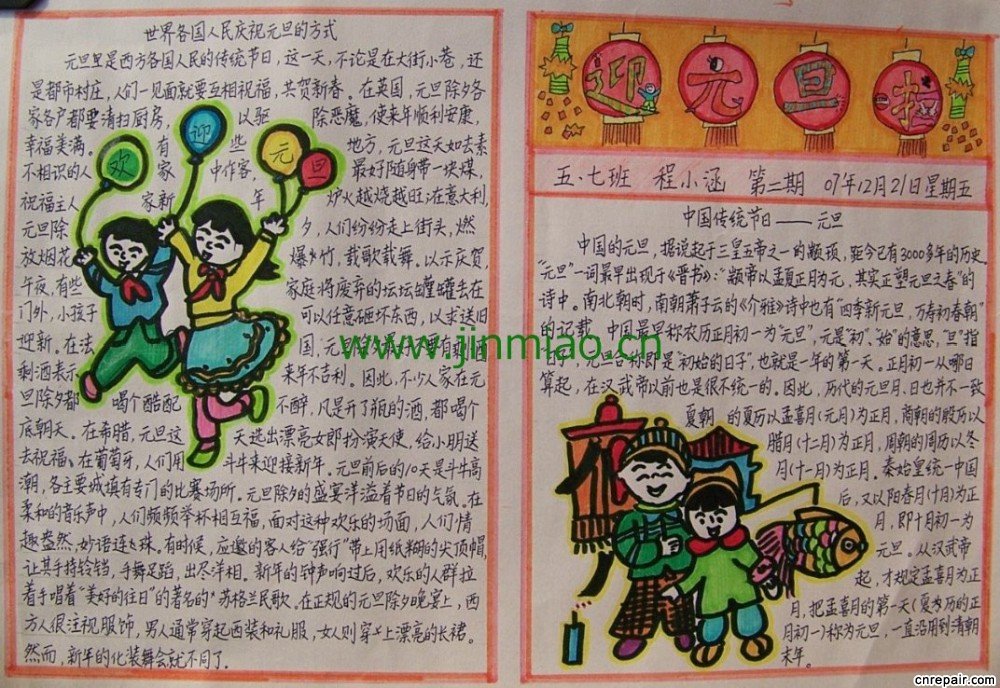 世界各国人民庆祝元旦的方式
元旦更是西方各国人民的传统节日，这一天，不论是在大街小巷，还
是都市村庄，人们一见面就要互相祝福，共贺新春。在英国，元旦除夕各
家各户都要清扫厨房，以驱除恶魔，使来年顺利安康，
幸福美满。有些地方，元旦这天如去素
不相识的人家中作客，最好随身带一块煤，
祝福主人家新年炉火越烧越旺。在意大利，
元旦除夕，人们纷纷走上街头，燃
放烟花爆竹，载歌载舞。以示庆贺，
午夜，有些家庭将废弃的坛坛罐罐丢在
门外，小孩子可以任意砸坏东西，以求送旧
迎新。在法国，元
剩酒表示来年不吉利。因此，不少人家在元
旦除夕都喝个酩酊不醉，凡是开了瓶的酒，都喝个
底朝天。在希腊，元旦这天选出漂亮女郎扮演天使，给小朋送
去祝福。在葡萄牙，人们用斗牛来迎接新年。元旦前后的10天是斗牛高
潮，各主要城填有专门的比赛场所。元旦除夕的盛宴洋溢着节日的气氛。在
柔和的音乐声中，人们频频举杯相互福，面对这种欢乐的场面，人们情
趣盎然，妙语连珠。有时候，应邀的客人给“强行”带上用纸糊的尖顶帽，
让其手持铃铛，手舞足蹈，出尽洋相。新年的钟声响过后，欢乐的人群拉
着手唱着“美好的往日”的著名的苏格兰民歌，在正规的元旦除夕晚宴上，西
方人很注视服饰，男人通常穿起西装和礼服，女人则穿上漂亮的长裙。
然而，新年的化装舞会就不同了。
欢迎元旦
迎元旦
五·七班 程小涵 第二期 07年12月21日星期五
中国传统节日——元旦
中国的元旦，据说起于三皇五帝之一的颛顼，距今已有3000多年的历史
“元旦”一词最早出现于《晋书》：“颛帝以孟夏正月为元，其实正塑元旦之春”的
诗中。南北朝时，南朝萧子云的《介雅》诗中也有“四季新元旦，万寿初春朝”
的记载。中国最早称农历正月初一为“元旦”，元是“初”、“始”的意思，“旦”指
元旦合称即是“初始的日子”，也就是一年的第一天。正月初一从哪日
算起，在汉武帝以前也是很不统一的。因此，历代的元旦月、日也并不一致
夏朝的夏历以孟喜月（元月）为正月，商朝的殷历以
腊月（十二月）为正月，周朝的周历以冬
月（十一月）为正月。秦始皇统一中国
后，又以阳春月（十月）为正
月，即十月初一为
元旦。从汉武帝
起，才规定孟喜月为正
月，把孟喜月的第一天（夏历的正
月初一）称为元旦，一直沿用到清朝
末年。
www.jinmiao.cn
cnrepair.com